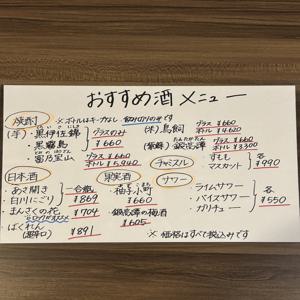 おすすめ酒メニュー
焼酎 ※ボトルはキープなし 飲みきりのみです
(芋)・黒伊佐錦
・黒霧島
・富乃宝山
グラスのみ
¥660
(米)鳥飼 グラス ¥660
ボトル ¥4620
(紫蘇)鍛高譚 グラス ¥660
ボトル ¥3300
チャミスル
・すもも
・マスカット
各
¥990
日本酒
・あさ開き
・白川にごり
一合瓶
¥869
・まんさくの花 ¥704
・ばくれん
(超辛口) ¥891
果実酒
・柚子小町
¥660
・鍛高譚の梅酒
¥605
サワー
・ライムサワー
・バイスサワー
・ガリチュー
各
¥550
※価格はすべて税込みです